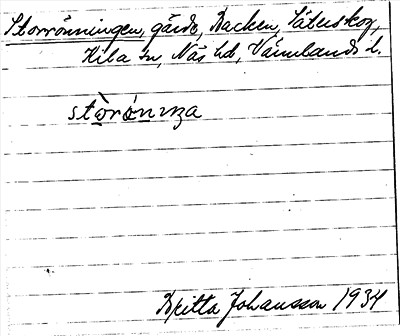 Storrönningen, gärde, Backen, Säterskog,
Hila sn, Näs hd, Värmlands l.
stòrónıŋa
Britta Johansson 1934